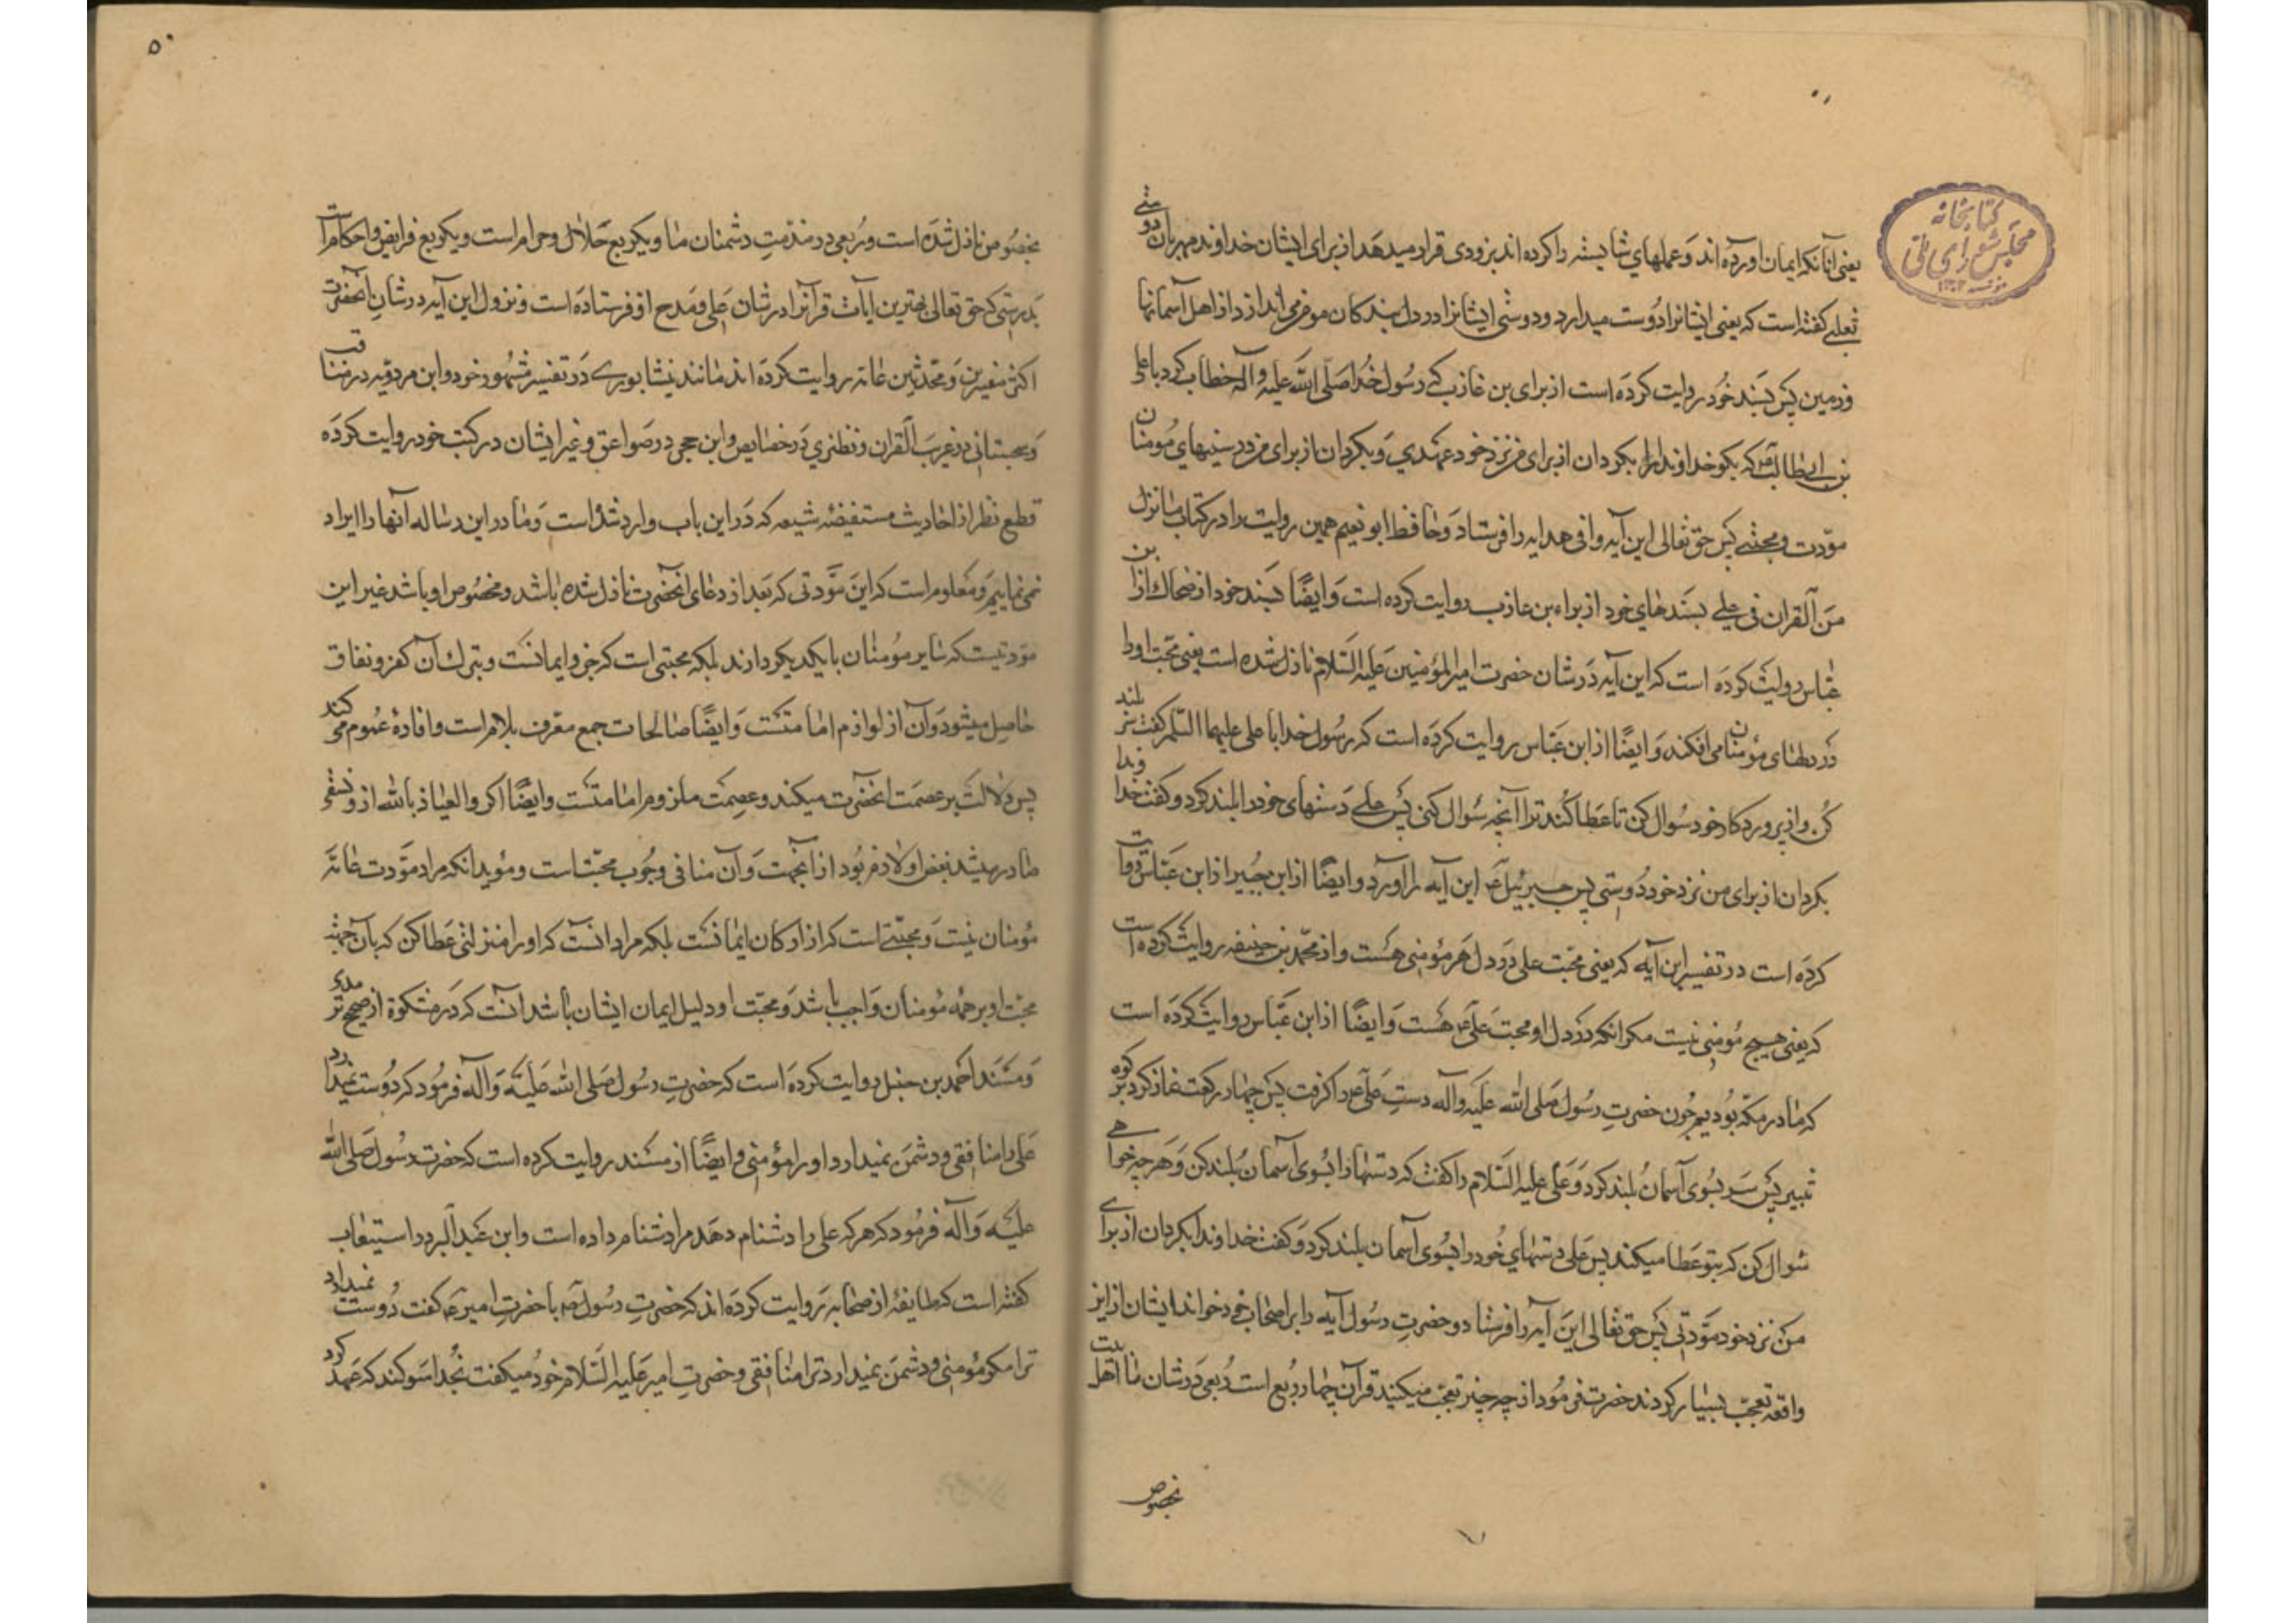 یعنی آنانکه ایمان اورده اند و عملهای شایسته را کرده اند بزودی قرار میدهد از برای ایشان خداوند مهربان دوستی
ثعلبی کفته است که یعنی ایشانرا دوست میدارد و دوستی ایشانرا در دل بندکان مومن می اندازد از اهل آسمانها
و زمین پس بسند خود روایت کرده است از برای بن عازب که رسول خدا صلی الله علیه و آله خطاب کرد با علی
بن ابیطالب که بکو خداوندا بکردان از برای من نزد خود عهدی و بکردان از برای من در سینهای مومنان
مودت و محبتی پس حق تعالی این آیه وافی هدایه را فرستاد و حافظ ابو نعیم همین روایت را در کتاب ما نزل
من القران فی علی بسندهای خود از براء بن عازب روایت کرده است و ایضا بسند خود از ضحاک از ابن
عباس روایت کرده است که این آیه در شان حضرت امیر المؤمنین علیه السلام نازل شده است یعنی محبت او را
در دلهای مؤمنان می افکند و ایضا از ابن عباس روایت کرده است که رسول خدا با علی علیهما السلام کفت سر بلند
کن و از پروردکار خود سوال کن تا عطا کند ترا آنچه سوال کنی پس علی دستهای خود را بلند کرد و کفت خداوندا
بکردان از برای من نزد خود دوستی پس جبرئیل این آیه را آورد و ایضا از ابن جبیر از ابن عباس روایت
کرده است در تفسیر این آیه که یعنی محبت علی در دل هر مؤمنی هست و از محمد بن حنیفه روایت کرده است
که یعنی هیچ مؤمنی نیست مکر انکه در دل او محبت علی هست و ایضا از ابن عباس روایت کرده است
که ما در مکه بودیم چون حضرت رسول صلی الله علیه و آله دست علی را کرفت پس چهار رکعت نماز کرد بر کوه
ثبیر پس سر بسوی آسمان بلند کرد و علی علیه السلام را کفت که دستها را بسوی آسمان بلند کن و هر چه خواهی
سوال کن که بتو عطا میکند پس علی دستهای خود را بسوی آسمان بلند کرد و کفت خداوندا بکردان از برای
من نزد خود مودتی پس حق تعالی این آیه را فرستاد و حضرت رسول آیه را بر اصحاب خود خواند ایشان از این
واقعه تعجب بسیار کردند حضرت فرمود از چه چیز تعجب میکنید قرآن چهار ربع است ربعی در شان ما اهل بیت
بخصوص
۵۰
بخصوص نازل شده است و ربعی در مذمت دشمنان ما و یکربع حلال و حرام است و یکربع فرایض و احکام
بدرستی که حق تعالی بهترین ایات قرآنرا در شان علی و مدح او فرستاده است و نزول این آیه در شان انحضرت
اکثر مفسرین و محدثین عامه روایت کرده اند مانند نیشابوری در تفسیر مشهور خود و ابن مردویه در مناقب
و سجستانی در غریب القران و نطنزی در خصایص و ابن حجر در صواعق و غیر ایشان در کتب خود روایت کرده
قطع نظر از احادیث مستفیضه شیعه که در این باب وارد شده است و ما در این رساله آنها را ایراد
نمی نماییم و معلوم است که این مودتی که بعد از دعای انحضرت نازل شده باشد و مخصوص او باشد غیر این
مودتیست که سایر مؤمنان با یکدیکر دارند بلکه محبتی است که جزو ایمانست و بترک آن کفر و نفاق
حاصل میشود و آن از لوازم امامتست و ایضا صالحات جمع معرف بلام است و افادۀ عموم می کند
پس دلالت بر عصمت انحضرت میکند و عصمت ملزوم امامتست و ایضا اکر و العیاذ بالله از و فسقی
صادر میشد بغض او لازم بود از انجهت و آن منافی وجوب محبتست و مؤید انکه مراد مودت عامه
مؤمنان نیست و محبتی است که از ارکان ایمانست بلکه مراد انست که او را منزلتی عطا کن که بآن جهت
محبت او بر همه مؤمنان واجب باشد و محبت او دلیل ایمان ایشان باشد انست که در مشکوة از صحیح ترمذی
و مسند احمد بن حنبل روایت کرده است که حضرت رسول صلی الله علیه و آله فرمود که دوست نمیدارد
علی را منافقی و دشمن نمیدارد او را مؤمنی و ایضا از مسند روایت کرده است که حضرت رسول صلی الله
علیه و آله فرمود که هرکه علی را دشنام دهد مرا دشنام داده است و ابن عبد البر در استیعاب
کفته است که طایفۀ از صحابه روایت کرده اند که حضرت رسول با حضرت امیر کفت دوست نمیدارد
ترا مکر مؤمنی و دشمن نمیدارد ترا منافقی و حضرت امیر علیه السلام خود میکفت بخدا سوکند که عهد کرد
کتابخانه
مجلس شورای ملی